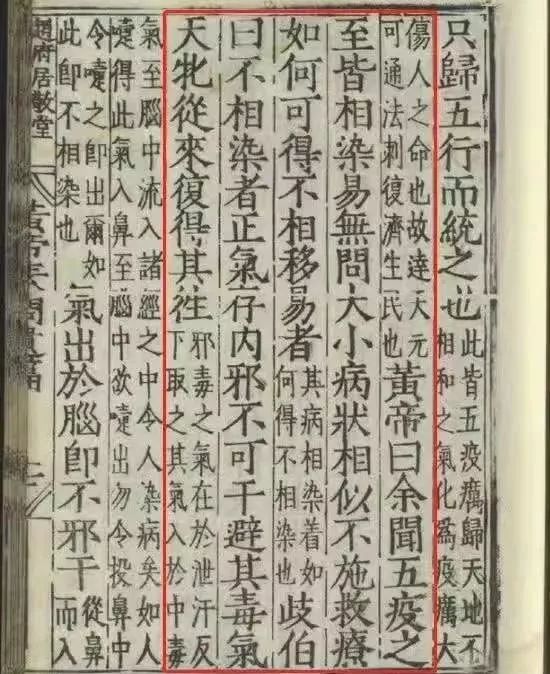 只歸五行而統之也
此皆五疫癘歸天地不
相和之氣化爲疫癘大
傷人之命也故達天元
可通法刺復濟生民也
黃帝曰余聞五疫之
至皆相染易無問大小病狀相似不施救療
如何可得不相移易者
其病相染着如
何得不相染也
歧伯
曰不相染者正氣存内邪不可干避其毒氣
天牝從來復得其徃
邪毒之氣在於泄汗反
下取之其氣入於中毒
氣至腦中流入諸經之中令人染病矣如人
嚏得此氣入鼻至腦中欲嚏出勿令投鼻中
令嚏之卽出爾如
此卽不相染也
氣出於腦卽不邪干
從鼻
而入
趙府居敬堂
黃帝素問遺篇